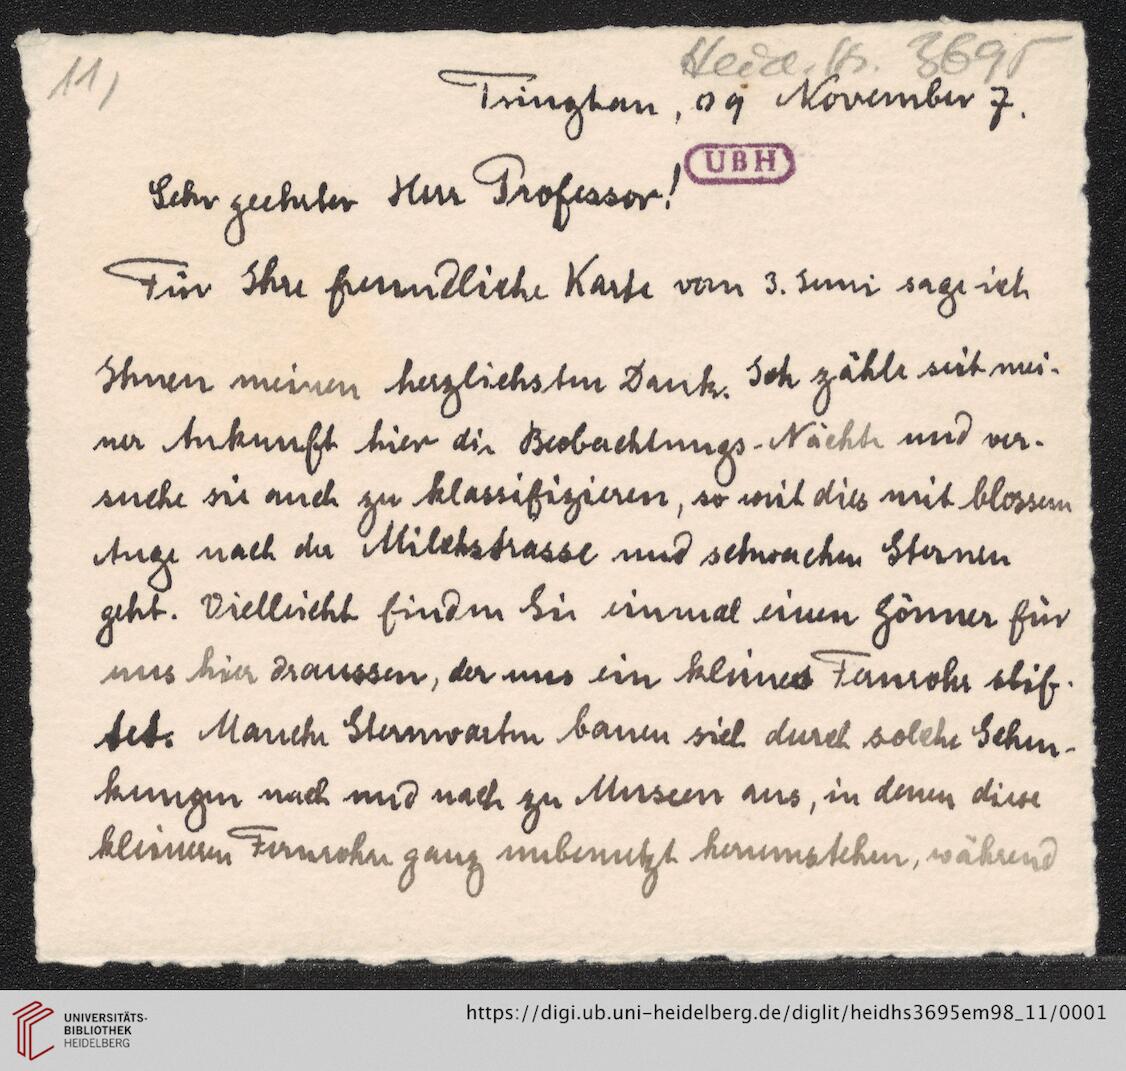 11,
Heid. Hs. 3695
Tsingtau, 09 November 7.
UBH
Sehr geehrter Herr Professor!
Für Ihre freundliche Karte vom 3. Juni sage ich
Ihnen meinen herzlichsten Dank. Ich zähle seit mei-
ner Ankunft hier die Beobachtungs-Nächte und ver-
suche sie auch zu klassifizieren, so weit dies mit blossem
Auge nach der Milchstrasse und schwachen Sternen
geht. Vielleicht finden Sie einmal einen Gönner für
uns hier draussen, der uns ein kleines Fernrohr stif-
tet. Manche Sternwarten bauen sich durch solche Schen-
kungen nach und nach zu Museen aus, in denen diese
kleineren Fernrohre ganz unbenutzt herumstehen, während
UNIVERSITÄTS-
BIBLIOTHEK
HEIDELBERG
https://digi.ub.uni-heidelberg.de/diglit/heidhs3695em98_11/0001